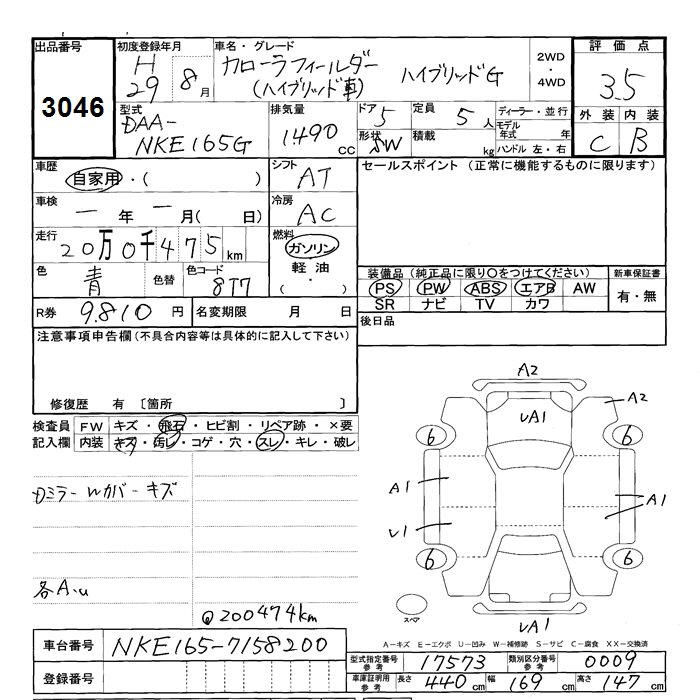 出品番号
3046
初度登録年月
H29 8月
車名・グレード
カローラフィールダー ハイブリッドG
(ハイブリッド車)
2WD
・
4WD
評価点
3.5
外装 内装
C B
型式
DAA-
NKE165G
排気量
1490 cc
ドア 5
形状 SW
定員 5人
積載 kg
ディーラー・並行
モデル年式 年
ハンドル 左・右
車歴
自家用・( )
車検
一年 一月( 日)
走行
20万0千475km
色 青 色替 色コード 8T7
シフト
AT
冷房
AC
燃料
ガソリン
軽油
( ・ )
セールスポイント (正常に機能するものに限ります)
装備品(純正品に限り○をつけてください)
PS PW ABS エアB AW
SR ナビ TV カワ
新車保証書
有・無
R券 9.810円 名変期限 月 日
後日品
注意事項申告欄(不具合内容等は具体的に記入して下さい)
修復歴 有 〔箇所 〕
検査員記入欄
FW キズ・飛石・ヒビ割・リペア跡・×要
内装 キズ・汚レ・コゲ・穴・スレ・キレ・破レ
Dミラーwカバーキズ
各A.u
@200474km
A2
UA1
A2
6
6
A1
A1
U1
6
6
スペア
UA1
A-キズ E-エクボ U-凹み W-補修跡 S-サビ C-腐食 XX-交換済
車台番号 NKE165-7158200
登録番号
型式指定番号参考 17573 類別区分番号参考 0009
車庫証明用参考 長さ 440cm 幅 169cm 高さ 147cm